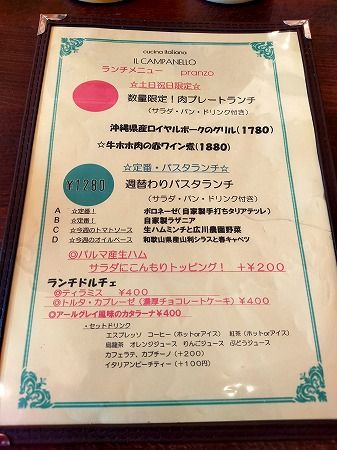 cucina italiana
IL CAMPANELLO
ランチメニュー　pranzo
☆土日祝日限定☆
数量限定！肉プレートランチ
（サラダ・パン・ドリンク付き）
沖縄県産ロイヤルポークのグリル(1780)
☆牛ホホ肉の赤ワイン煮(1880)
☆定番・パスタランチ☆
¥1280
週替わりパスタランチ
（サラダ・パン・ドリンク付き）
A ☆定番！ ボロネーゼ(自家製手打ちタリアテレ)
B ☆定番！ 自家製ラザニア
C ☆今週のトマトソース 生ハムミンチと広川農園野菜
D ☆今週のオイルベース 和歌山県産山利シラスと春キャベツ
◎パルマ産生ハム
サラダにこんもりトッピング！ ＋¥200
ランチドルチェ
◎ティラミス ¥400
◎トルタ・カプレーゼ（濃厚チョコレートケーキ）¥400
◎アールグレイ風味のカタラーナ¥400
・セットドリンク
エスプレッソ コーヒー（ホットorアイス） 紅茶（ホットorアイス）
烏龍茶 オレンジジュース りんごジュース ぶどうジュース
カフェラテ、カプチーノ（＋200）
イタリアンピーチティー（＋100円）